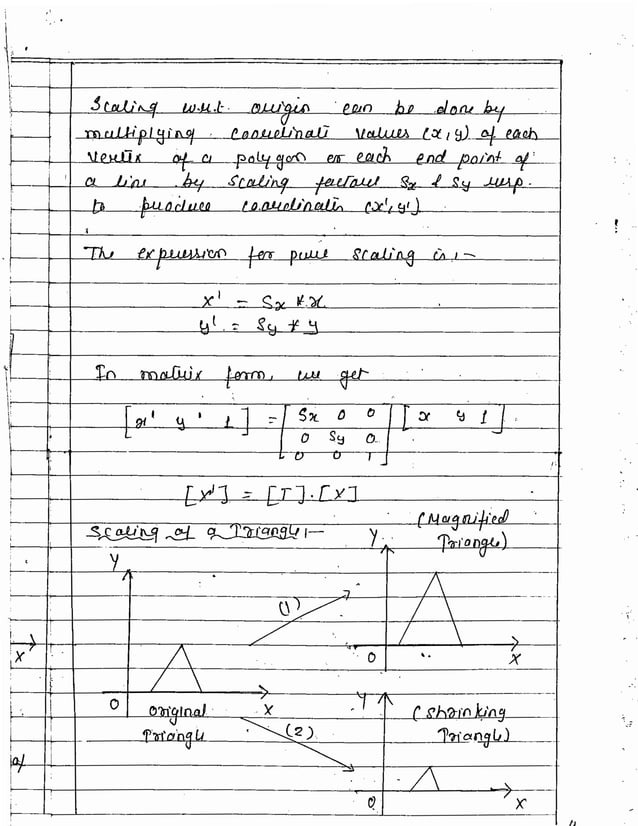 Scaling w.r.t. origin can be done by
multiplying coordinate values (x,y) of each
vertex of a polygon or each end point of
a line by scaling factors Sx & Sy resp.
to produce coordinates (x',y')
The expression for pure scaling is,-
x' = Sx * x
y' = Sy * y
In matrix form, we get
[x' y' 1] = [Sx 0 0 [x y 1]
0 Sy 0
0 0 1]
[X'] = [T].[X]
Scaling of a Triangle,-
(Magnified
Triangle)
Y
Y
(1)
O
X
X
O
X
Original
Triangle
(2)
Y
(Shrinking
Triangle)
O
X